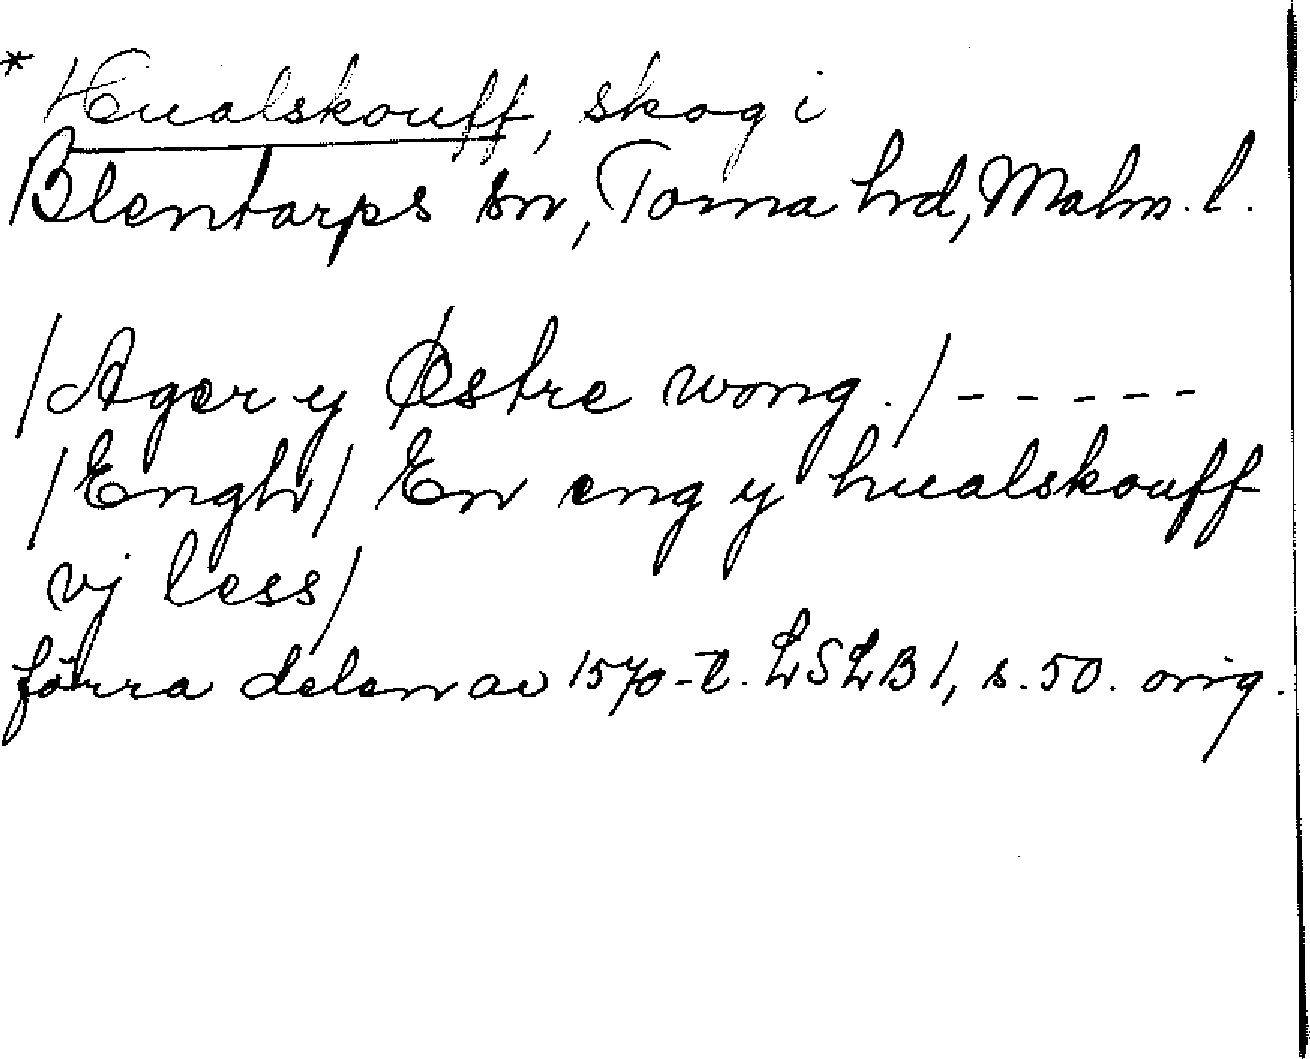 * Hualskouff, skog i
Blentarps sn, Torna hrd, Malm. l.
/Ager y Østre wong./ - - - - -
/Engh/ En eng y hualskouff
vj less/
förra delen av 1570-t. LSLB 1, s. 50. orig.